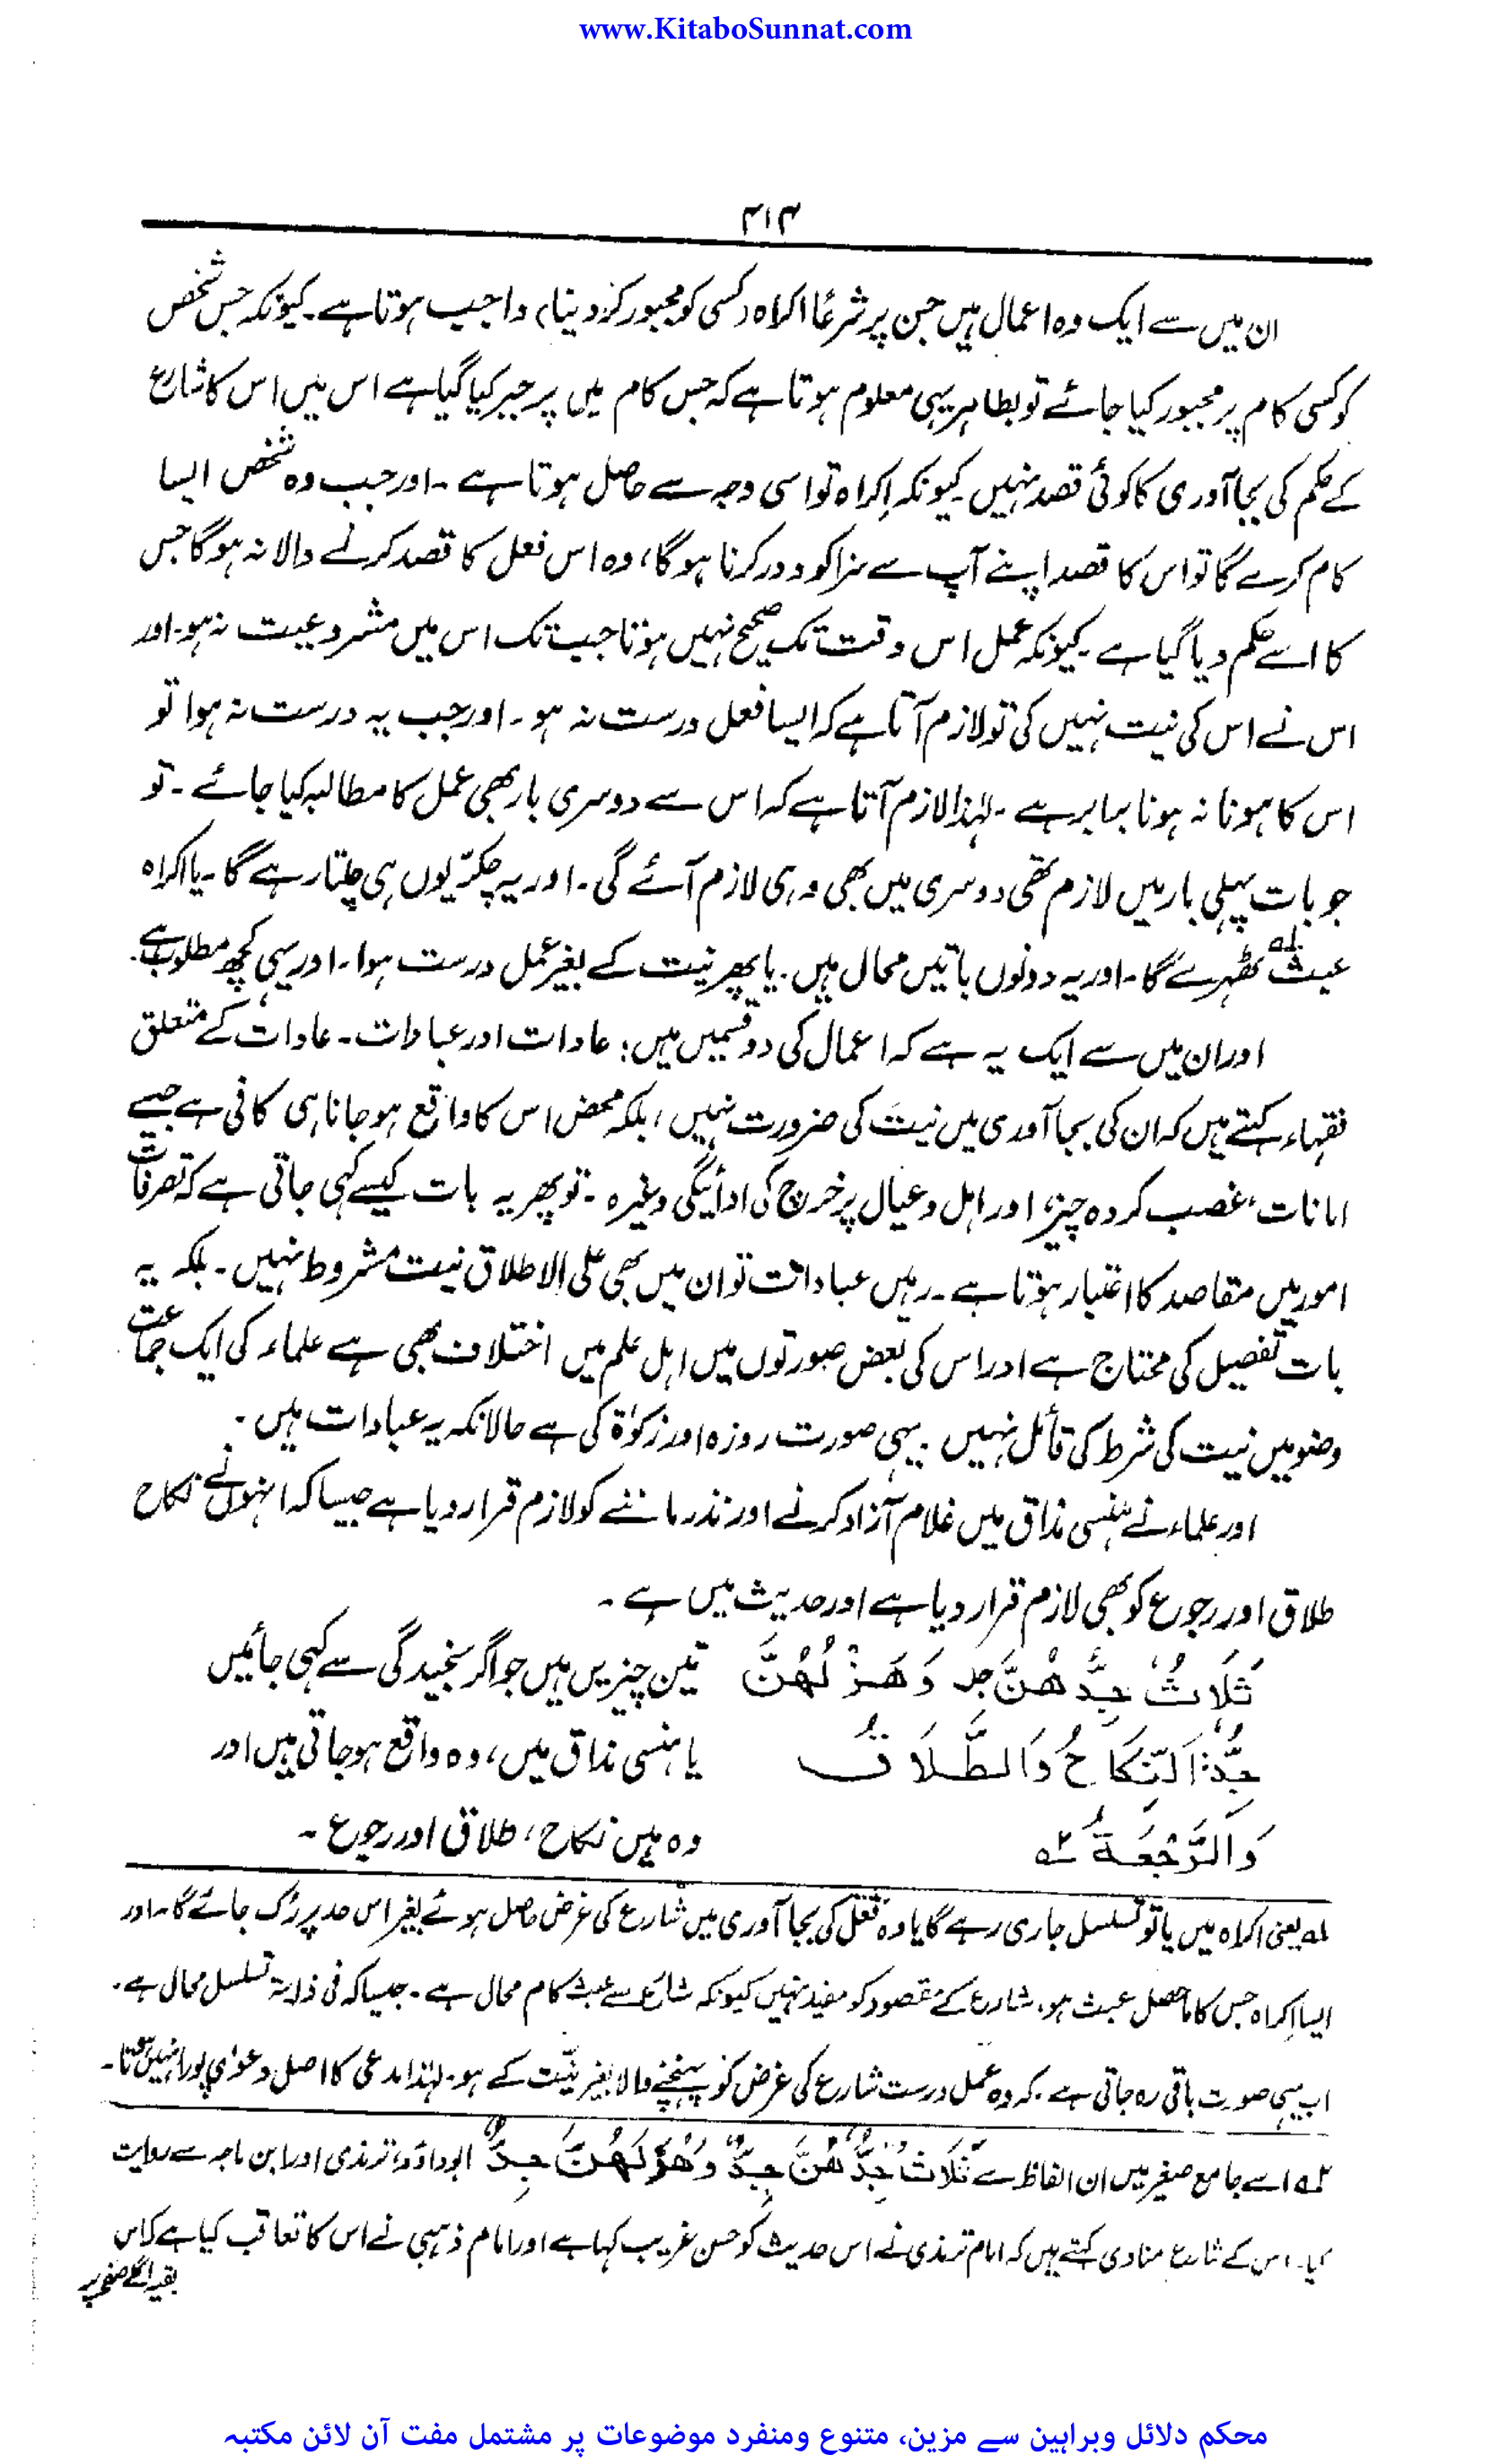 www.KitaboSunnat.com
۴۱۴
ان میں سے ایک وہ اعمال ہیں جن پر شرعًا اکراہ (کسی کو مجبور کر دینا) واجب ہوتا ہے۔ کیونکہ جس شخص
کو کسی کام پر مجبور کیا جائے تو بظاہر یہی معلوم ہوتا ہے کہ جس کام میں پر جبر کیا گیا ہے اس میں اس کا شارع
کے حکم کی بجا آوری کا کوئی قصد نہیں۔ کیونکہ اِکراہ تو اسی وجہ سے حاصل ہوتا ہے۔ اور جب وہ شخص ایسا
کام کرے گا تو اس کا قصد اپنے آپ سے سزا کو دور کرنا ہوگا، وہ اس فعل کا قصد کرنے والا نہ ہوگا جس
کا اسے حکم دیا گیا ہے۔ کیونکہ عمل اس وقت تک صحیح نہیں ہوتا جب تک اس میں مشروعیت نہ ہو۔ اور
اس نے اس کی نیت نہیں کی تو لازم آتا ہے کہ ایسا فعل درست نہ ہو۔ اور جب یہ درست نہ ہوا تو
اس کا ہونا نہ ہونا برابر ہے۔ لہٰذا لازم آتا ہے کہ اس سے دوسری بار بھی عمل کا مطالبہ کیا جائے۔ تو
جو بات پہلی بار میں لازم تھی دوسری میں بھی وہی لازم آئے گی۔ اور یہ چکّر یوں ہی چلتا رہے گا۔ یا اکراہ
عبث ٹھہرے گا۔ ۱ے اور یہ دونوں باتیں محال ہیں۔ یا پھر نیت کے بغیر عمل درست ہوا۔ اور یہی کچھ مطلوب ہے۔
اور ان میں سے ایک یہ ہے کہ اعمال کی دو قسمیں ہیں: عادات اور عبادات۔ عادات کے متعلق
فقہاء کہتے ہیں کہ ان کی بجا آوری میں نیت کی ضرورت نہیں، بلکہ محض اس کا واقع ہو جانا ہی کافی ہے جیسے
امانات، غصب کردہ چیز، اور اہل و عیال پر خرچ کی ادائیگی وغیرہ۔ تو پھر یہ بات کیسے کہی جاتی ہے کہ تصرفات
امور میں مقاصد کا اعتبار ہوتا ہے۔ رہیں عبادات تو ان میں بھی علی الاطلاق نیت مشروط نہیں۔ بلکہ یہ
بات تفصیل کی محتاج ہے اور اس کی بعض صورتوں میں اہل علم میں اختلاف بھی ہے علماء کی ایک جماعت
وضو میں نیت کی شرط کی قائل نہیں۔ یہی صورت روزہ اور زکوٰۃ کی ہے حالانکہ یہ عبادات ہیں۔
اور علماء نے ہنسی مذاق میں غلام آزاد کرنے اور نذر ماننے کو لازم قرار دیا ہے جیسا کہ انہوں نے نکاح
طلاق اور رجوع کو بھی لازم قرار دیا ہے اور حدیث میں ہے۔
ثَلَاثٌ جِدُّهُنَّ جد وَهَزْلُهُنَّ
جِدٌّ: اَلنِّكَاحُ وَالطَّلَاقُ
وَالرَّجْعَةُ ۲ے
تین چیزیں ہیں جو اگر سنجیدگی سے کہی جائیں
یا ہنسی مذاق میں، وہ واقع ہو جاتی ہیں اور
وہ ہیں نکاح، طلاق اور رجوع۔
۱ے یعنی اکراہ میں یا تو تسلسل جاری رہے گا یا وہ فعل کی بجا آوری میں شارع کی غرض حاصل ہوئے بغیر اس حد پر رُک جائے گا۔ اور
ایسا اِکراہ جس کا ماحصل عبث ہو، شارع کے مقصود کو مفید نہیں کیونکہ شارع سے عبث کام محال ہے۔ جیسا کہ فی ذاتہٖ تسلسل محال ہے۔
اب یہی صورت باقی رہ جاتی ہے۔ کہ وہ عمل درست شارع کی غرض کو پہنچنے والا بغیر نیّت کے ہو۔ لہٰذا مدعی کا اصل دعوٰی پورا نہیں ہوتا۔
۲ے اسے جامع صغیر میں ان الفاظ سے ثَلَاثٌ جِدُّهُنَّ جِدٌّ وَهَزْلُهُنَّ جِدٌّ ابوداؤد، ترمذی اور ابن ماجہ سے روایت
کیا۔ اس کے شارع مناوی کہتے ہیں کہ امام ترمذی نے اس حدیث کو حسن غریب کہا ہے اور امام ذہبی نے اس کا تعاقب کیا ہے کہ اس
بقیہ اگلے صفحہ پر
محکم دلائل وبراہین سے مزین، متنوع ومنفرد موضوعات پر مشتمل مفت آن لائن مکتبہ